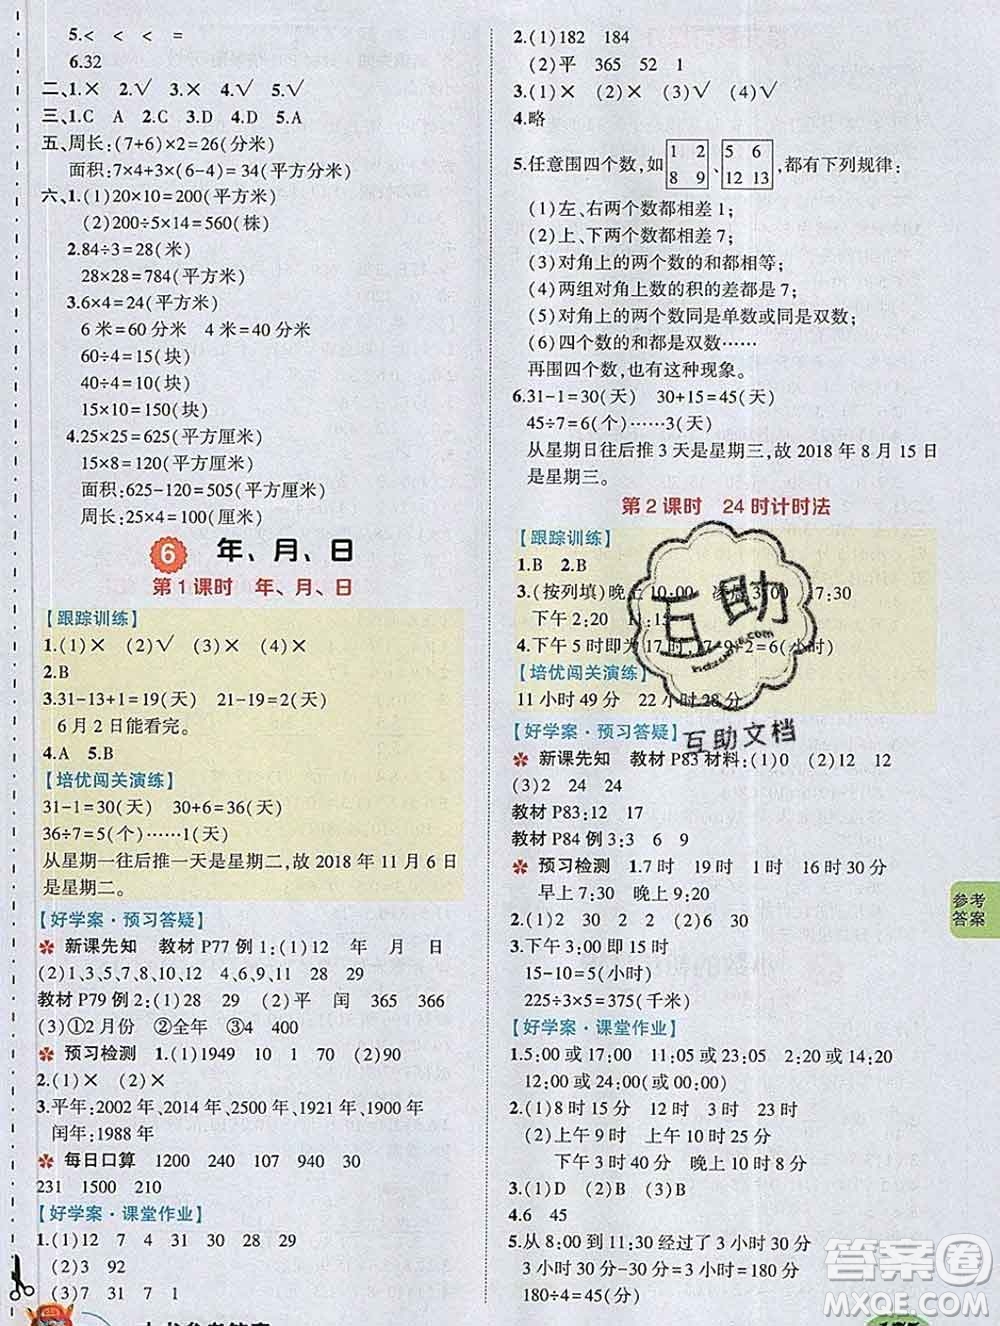 5.<　<　<　=
6.32
二、1.×　2.√　3.×　4.√　5.√
三、1.C　A　2.C　3.D　4.D　5.A
五、周长:(7+6)×2=26(分米)
面积:7×4+3×(6-4)=34(平方分米)
六、1.(1)20×10=200(平方米)
(2)200÷5×14=560(株)
2.84÷3=28(米)
28×28=784(平方米)
3.6×4=24(平方米)
6 米=60 分米　4 米=40 分米
60÷4=15(块)
40÷4=10(块)
15×10=150(块)
4.25×25=625(平方厘米)
15×8=120(平方厘米)
面积:625-120=505(平方厘米)
周长:25×4=100(厘米)
6　年、月、日
第 1 课时　年、月、日
【跟踪训练】
1.(1)×　(2)√　(3)×　(4)×
2.B
3.31-13+1=19(天)　21-19=2(天)
6 月 2 日能看完。
4.A　5.B
【培优闯关演练】
31-1=30(天)　30+6=36(天)
36÷7=5(个)……1(天)
从星期一往后推一天是星期二,故 2018 年 11 月 6 日
是星期二。
【好学案·预习答疑】
新课先知　教材 P77 例 1:(1)12　年　月　日
(2)1,3,5,7,8,10,12　4,6,9,11　2
教材 P79 例 2:(1)28　29　(2)平　闰　365　366
(3)①2 月份　②全年　③4　400
预习检测　1.(1)1949　10　1　70　(2)90
2.(1)×　(2)×
3.平年:2002 年,2014 年,2500 年,1921 年,1900 年
闰年:1988 年
每日口算　1200　240　107　940　30
231　1500　210
【好学案·课堂作业】
1.(1)12　7　4　31　30　28　29
(2)3　92
(3)7　31　7　1
2.(1)182　184
(2)平　365　52　1
3.(1)×　(2)×　(3)√　(4)√
4.略
5.任意围四个数,如 1 2 8 9、5 6 12 13,都有下列规律:
(1)左、右两个数都相差 1;
(2)上、下两个数都相差 7;
(3)对角上的两个数的和都相等;
(4)两组对角上数的积的差都是 7;
(5)对角上的两个数同是单数或同是双数;
(6)四个数的和都是双数……
再围四个数,也有这种现象。
6.31-1=30(天)　30+15=45(天)
45÷7=6(个)……3(天)
从星期日往后推 3 天是星期三,故 2018 年 8 月 15 日
是星期三。
第 2 课时　24 时计时法
【跟踪训练】
1.B　2.B
3.(按列填)晚上 10:00　17:30
下午 2:20　11:15
4.下午 5 时即为 17 时,17-9-2=6(小时)
【培优闯关演练】
11 小时 49 分　22 小时 28 分
【好学案·预习答疑】
新课先知　教材 P83 材料:(1)0　(2)12　12
(3)2　24　24
教材 P83:12　17
教材 P84 例 3:3　6　9
预习检测　1.7 时　19 时　1 时　16 时 30 分
早上 7:30　晚上 9:20
2.(1)2　30　2　2　(2)60　20
3.下午 3:00 即 15 时
15-10=5(小时)
225÷3×5=375(千米)
【好学案·课堂作业】
1.5:00 或 17:00　11:05 或 23:05　2:20 或 14:20
12:00 或 24:00　4:50 或 16:50
2.(1)8 时 15 分　14 时　3 时　22 时 30 分
(2)上午 9 时 15 分　凌晨 4 时 10 分
下午 3 时 40 分　晚上 9 时 12 分
3.(1)D　(2)B　(3)B
4.6　45
5.从 8:00 到 11:00 经过了 3 小时
3 小时 30 分-30 分=3 小时=180 分
180÷4=45(分)
参考
答案
互助
互助文档
答案圈
MXQE.COM